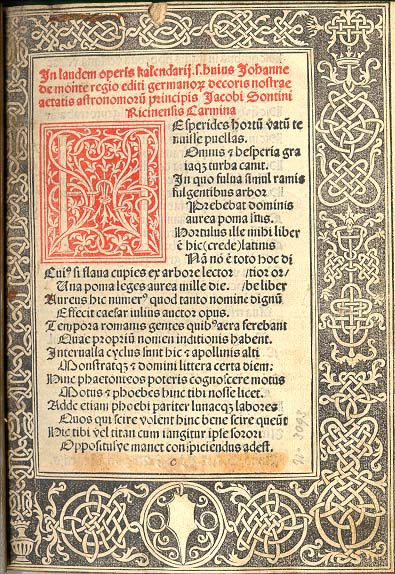 In laudem operis kalendarij .s. huius Johanne
de monte regio editi germanoꝝ decoris nostrae
aetatis astronomorũ principis Jacobi Sontini
Ricinensis Carmina
HEsperides hortũ vatũ te
nuisse puellas.
Omnis & hesperia gra
iaqꝫ turba canit.
In quo fulua simul ramis
fulgentibus arbor
Prebebat dominis
aurea poma suis.
Hortulus ille mihi liber
ẽ hic(crede)latinis
Nã nõ ẽ toto hoc di
Cuiꝰ si flaua cupies ex arbore lector /tior or/
Una poma leges aurea mille die. /be liber
Aureus hic numerꝰ quod tanto nomine dignũ
Effecit caesar iulius auctor opus.
Tempora romanis gentes quibꝰ aera ferebant
Quae propriũ nomen inditionis habent.
Internalla cyclus sunt hic & apollinis alti
Monstratqꝫ & domini littera certa diem:
Hinc phaetonteos poteris cognoscere motus
Motus & phoebes hinc tibi nosse licet.
Adde etiam phoebi pariter lunaeqꝫ labores
Quos qui scire volent hinc bene scire queũt
Hic tibi vel titan cum iangitur ipse sorori
Oppositusve manet conspiciendus adest.